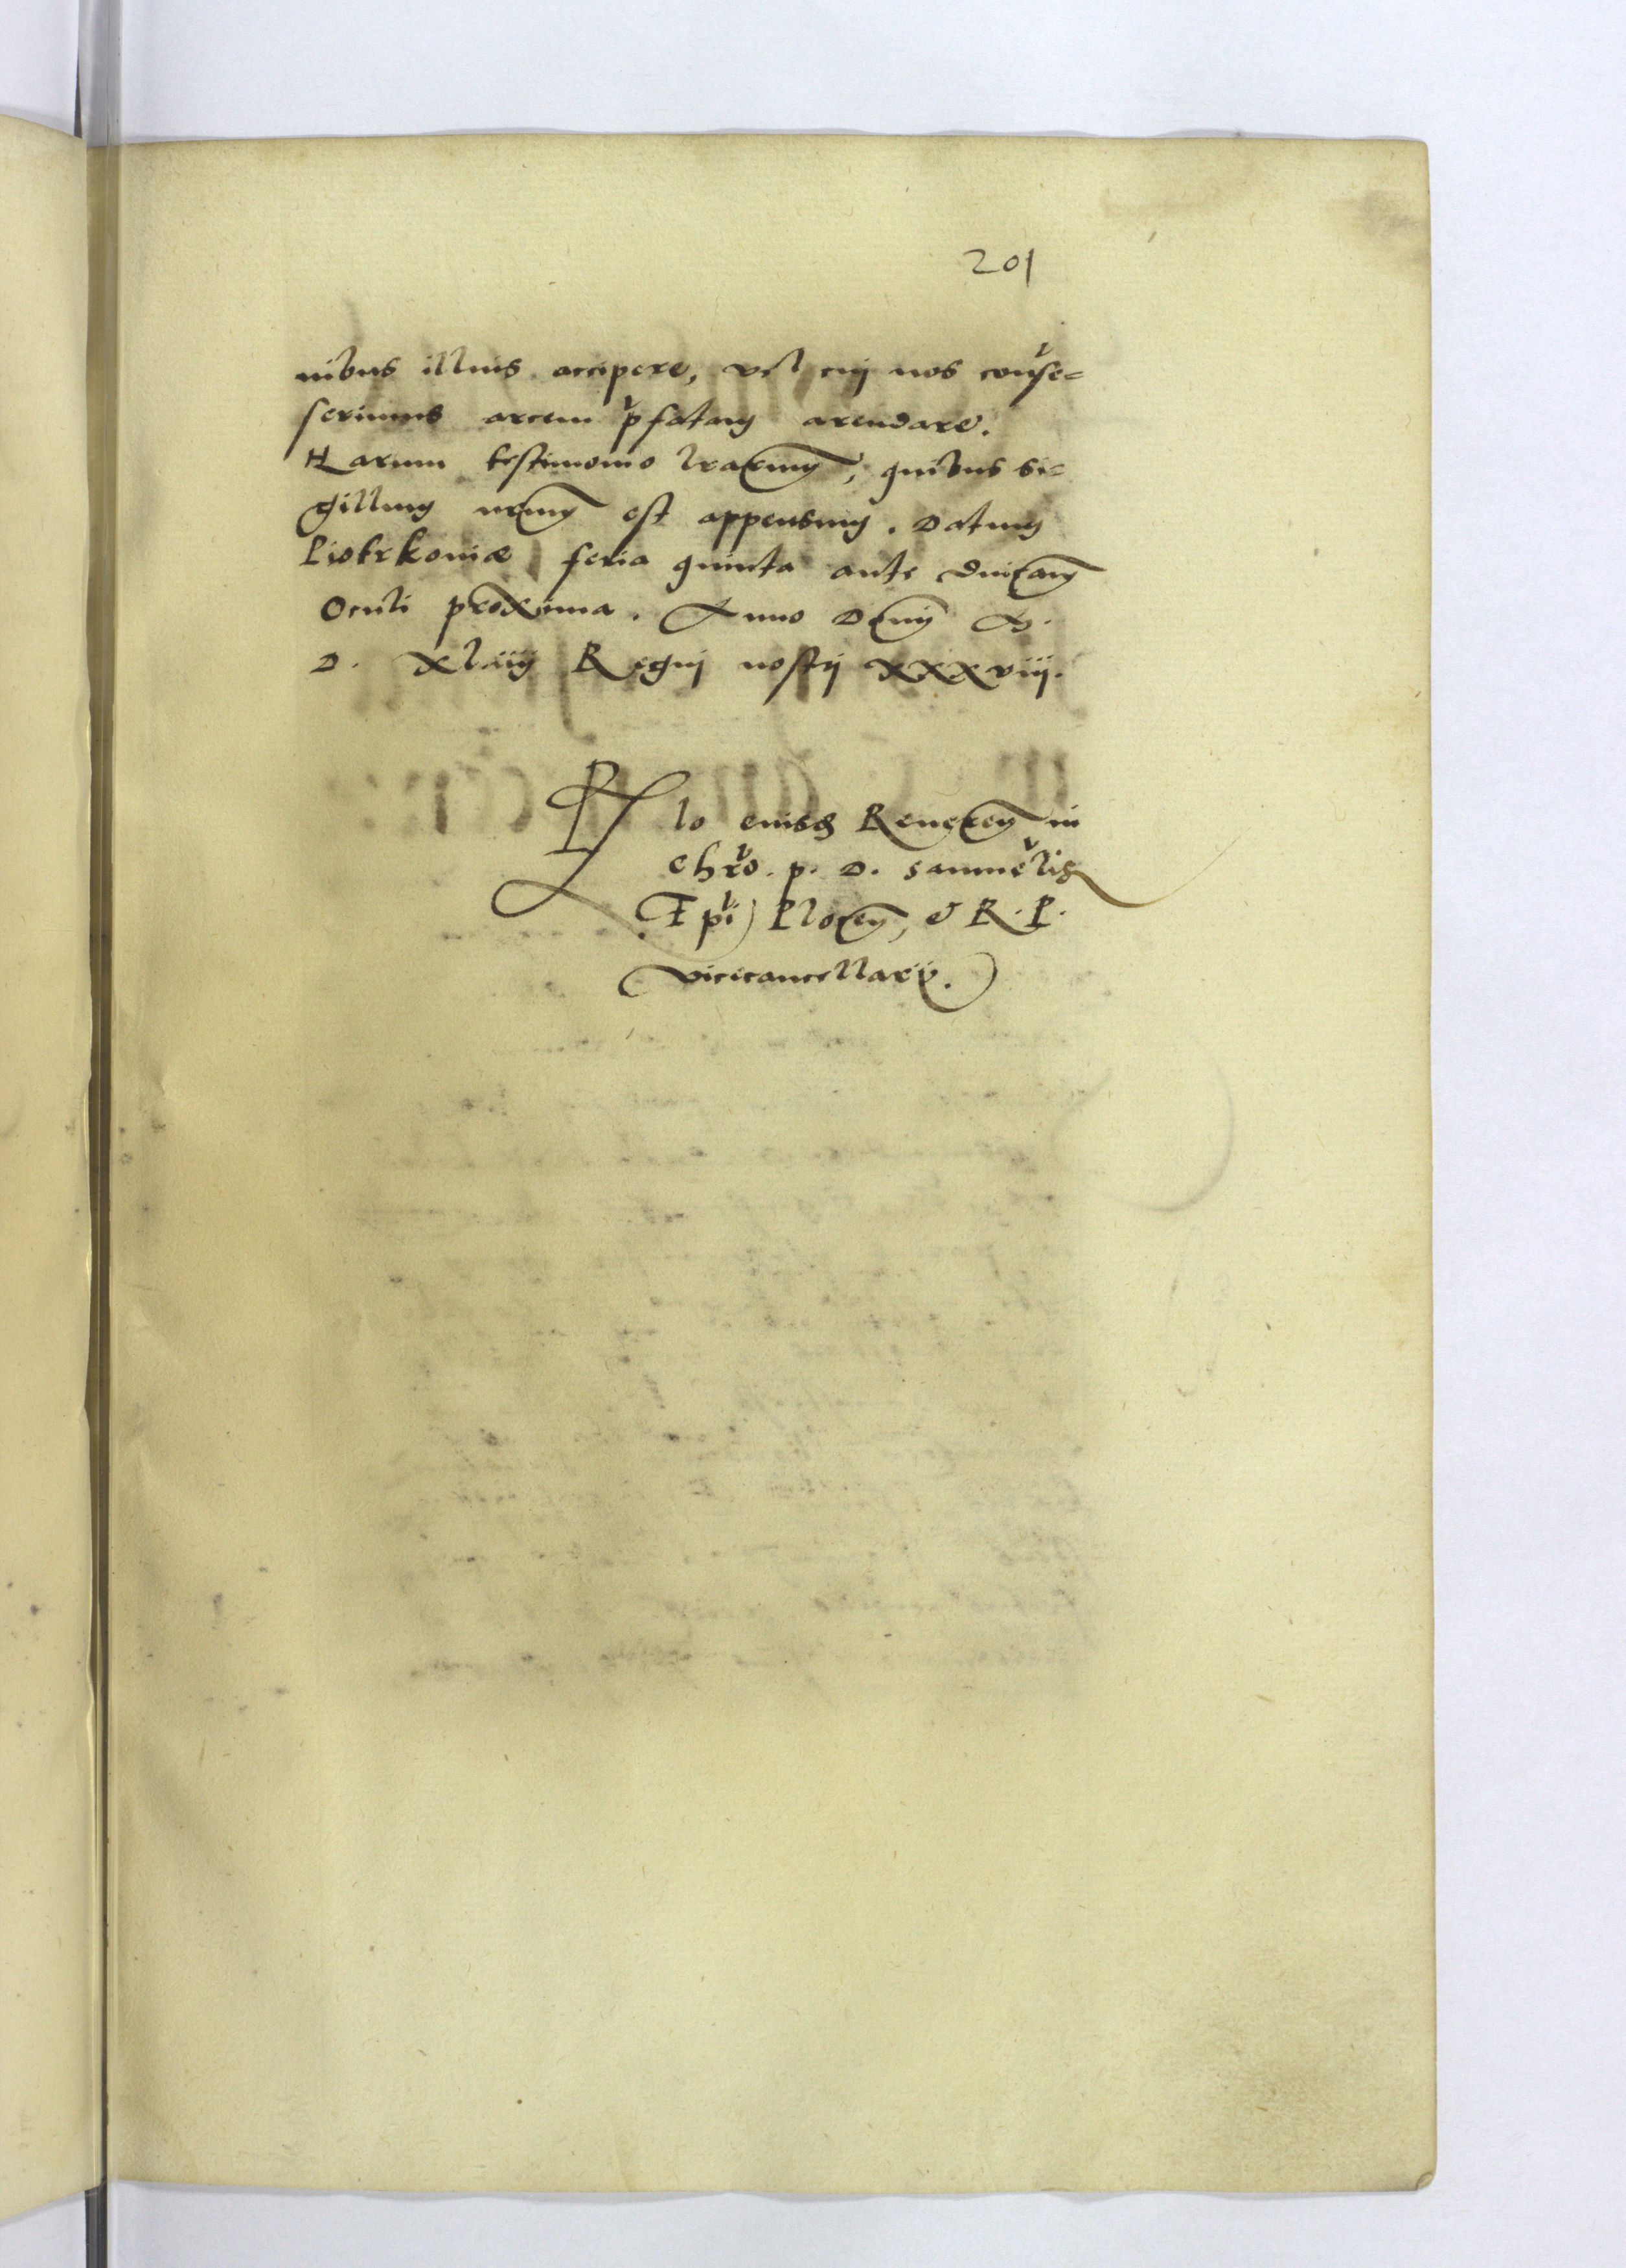 201
nibus illius accipere, vel cuj nos conse=
serimus arcem pfatam arendare.
Harum testimonio lrarum, quibus si=
gillum nrum est appensum. Datum
Piotrkoviæ feria quinta ante dnicam
Oculi proxima. Anno Domini M.
D. xliiij Regnj nostrj xxxviij.
Rlo eiusd Reveren in
Chro. p. D. Samuelis
Epi Plocen, & R. P.
vicecancellarij.